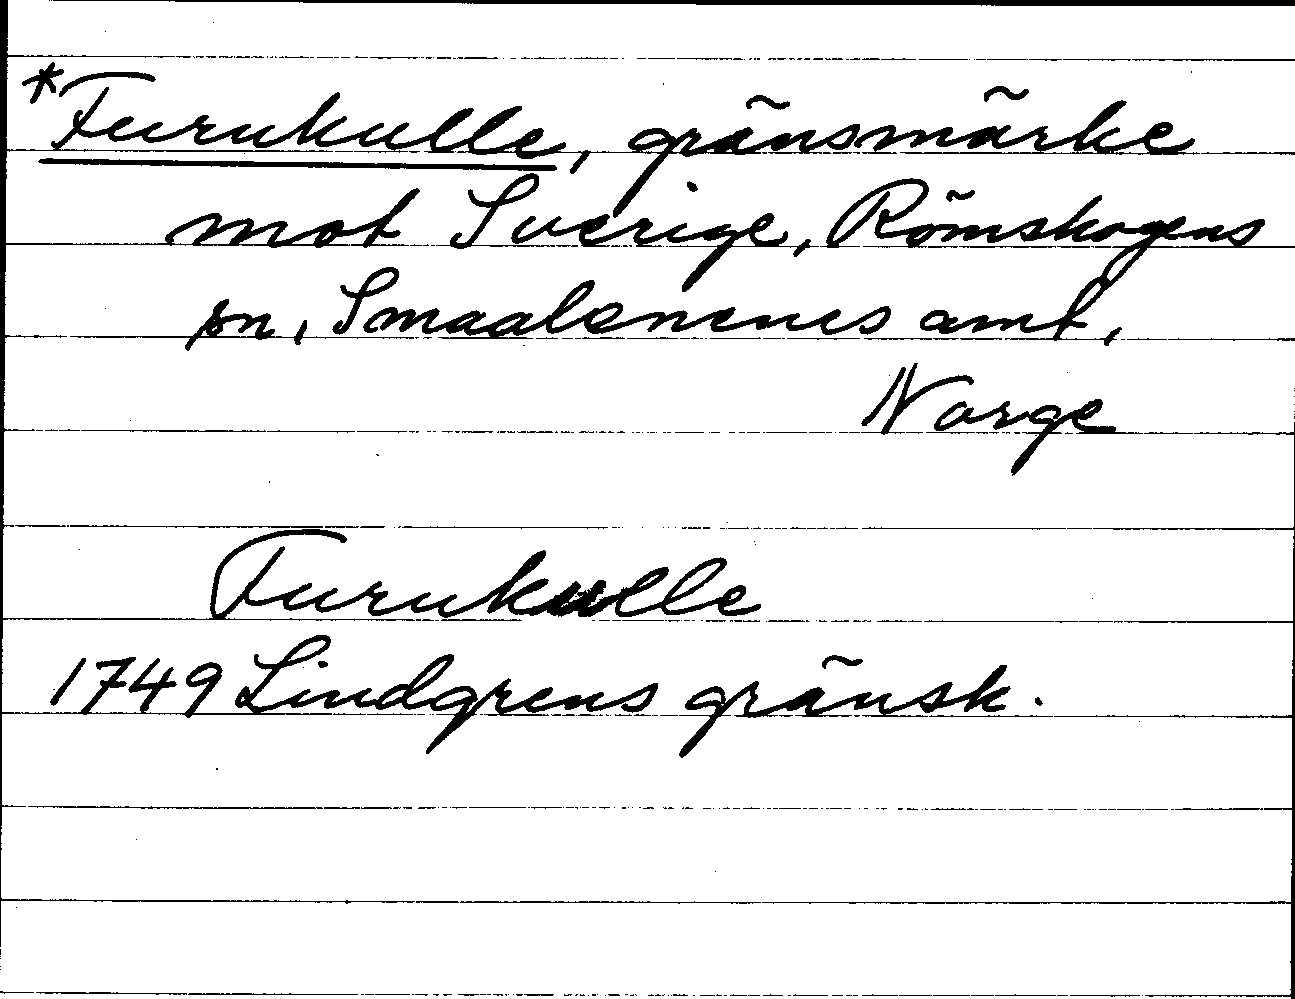 *Furukulle, gränsmärke
mot Sverige, Römskogens
sn, Smaalenenes amt,
Norge
Furukulle
1749 Lindgrens gränsk.